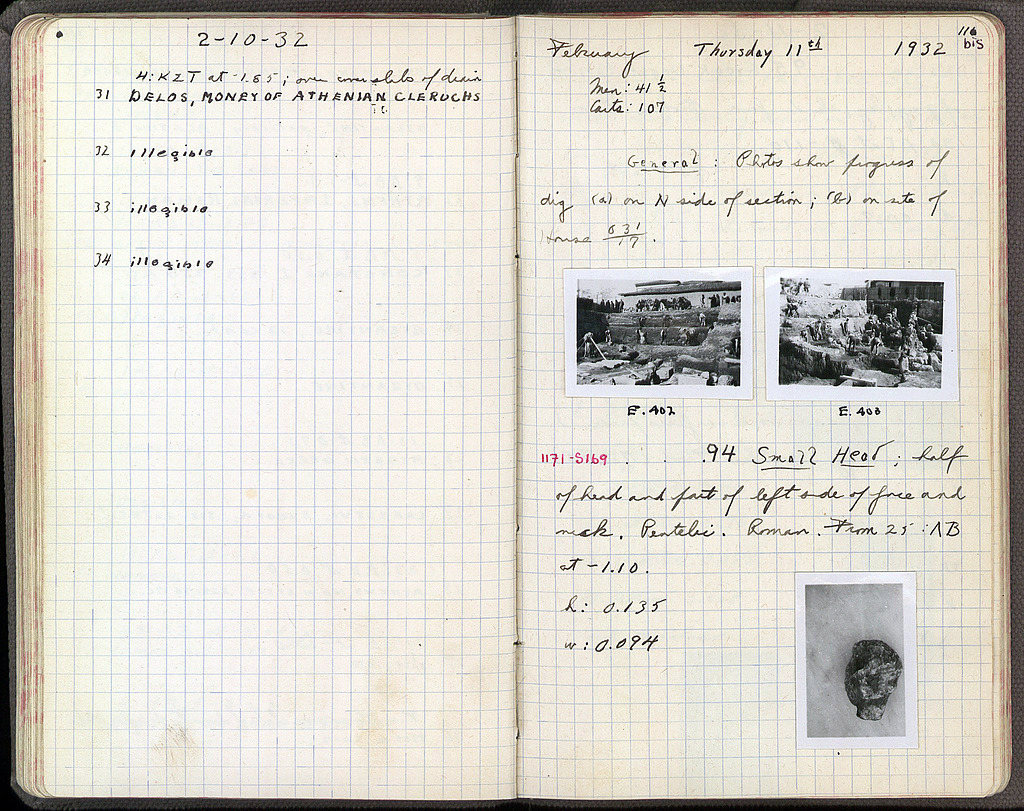 2-10-32
H: KZT at -1.85; over cover slabs of drain
31 DELOS, MONEY OF ATHENIAN CLERUCHS
32 Illegible
33 illegible
34 illegible
116
bis
February Thursday 11th 1932
Men: 41 1/2
Carts: 107
General: Photos show progress of
dig (a) on N side of section; (b) on site of
House 631/17.
E. 402 E. 403
1171-S169 . . 94 Small Head; half
of head and part of left side of face and
neck. Pentelic. Roman. From 25:ΛB
at -1.10.
h: 0.135
w: 0.094